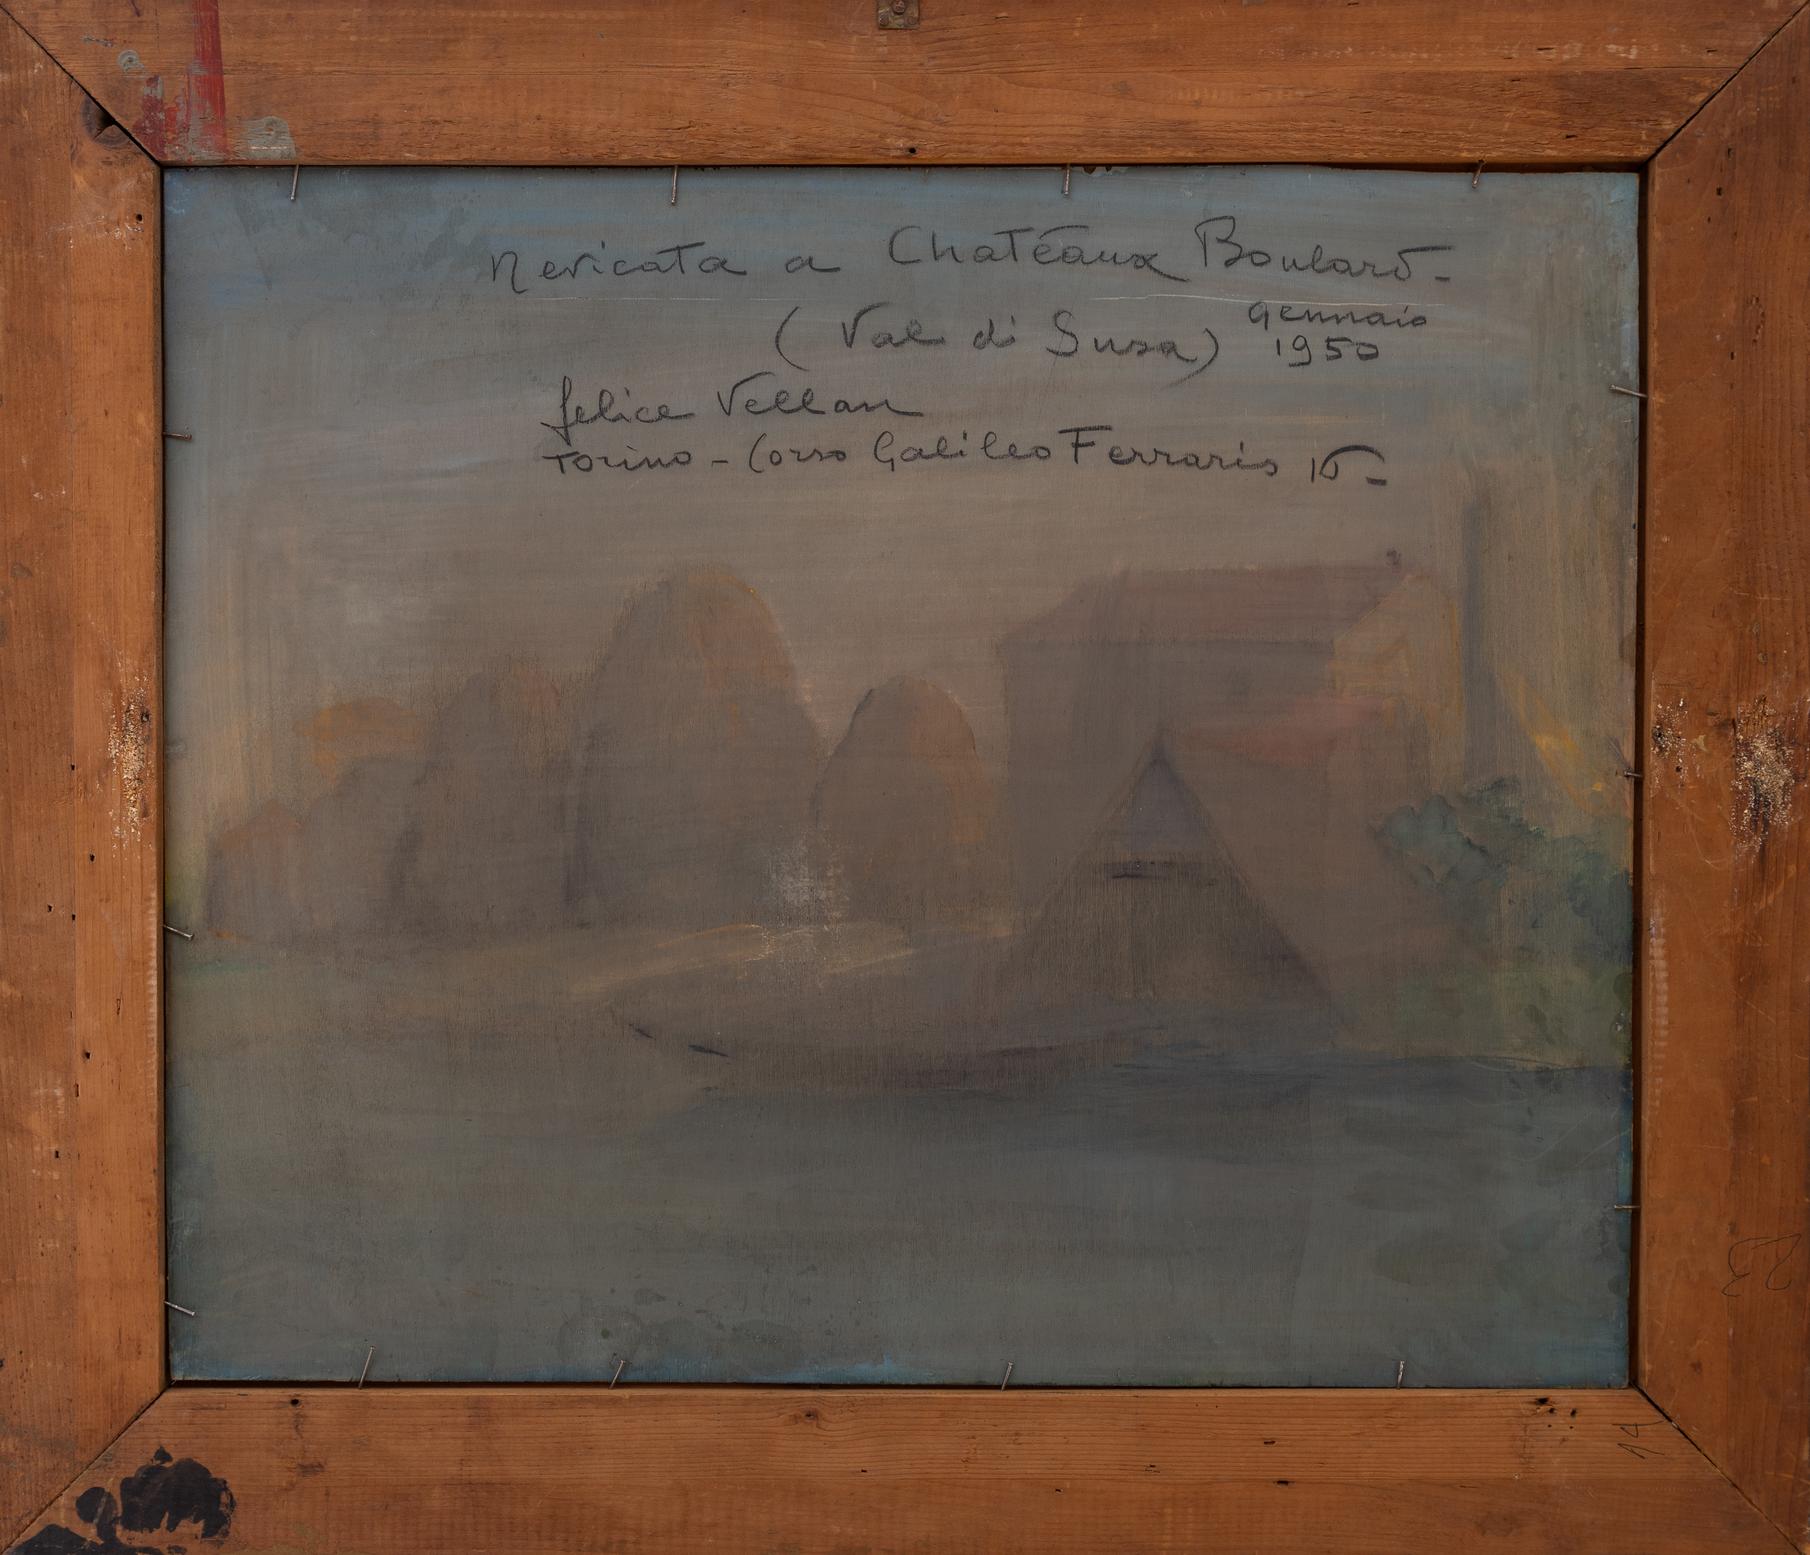 Nevicata a Chatéaux Boulard -
(Val di Susa) gennaio
1950
felice Vellan
Torino - Corso Galileo Ferraris